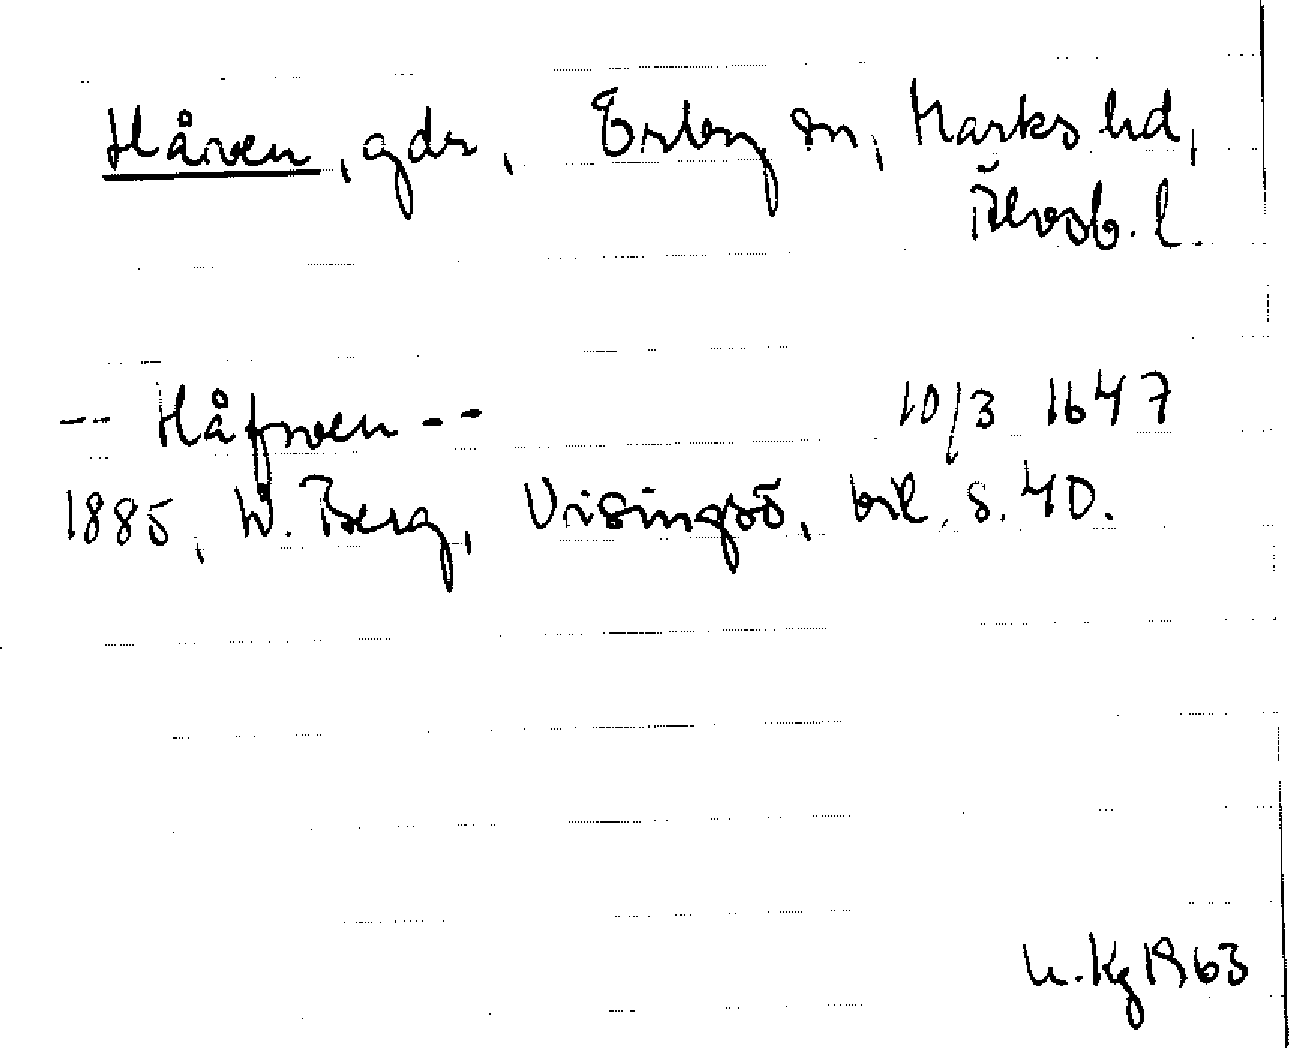 Håven, gdr, Örby sn, Marks hd,
Älvsb. l.
-- Håfwen -- 10/3 1647
1885, W. Berg, Visingsö, bil. s. 40.
u. Kg 1963